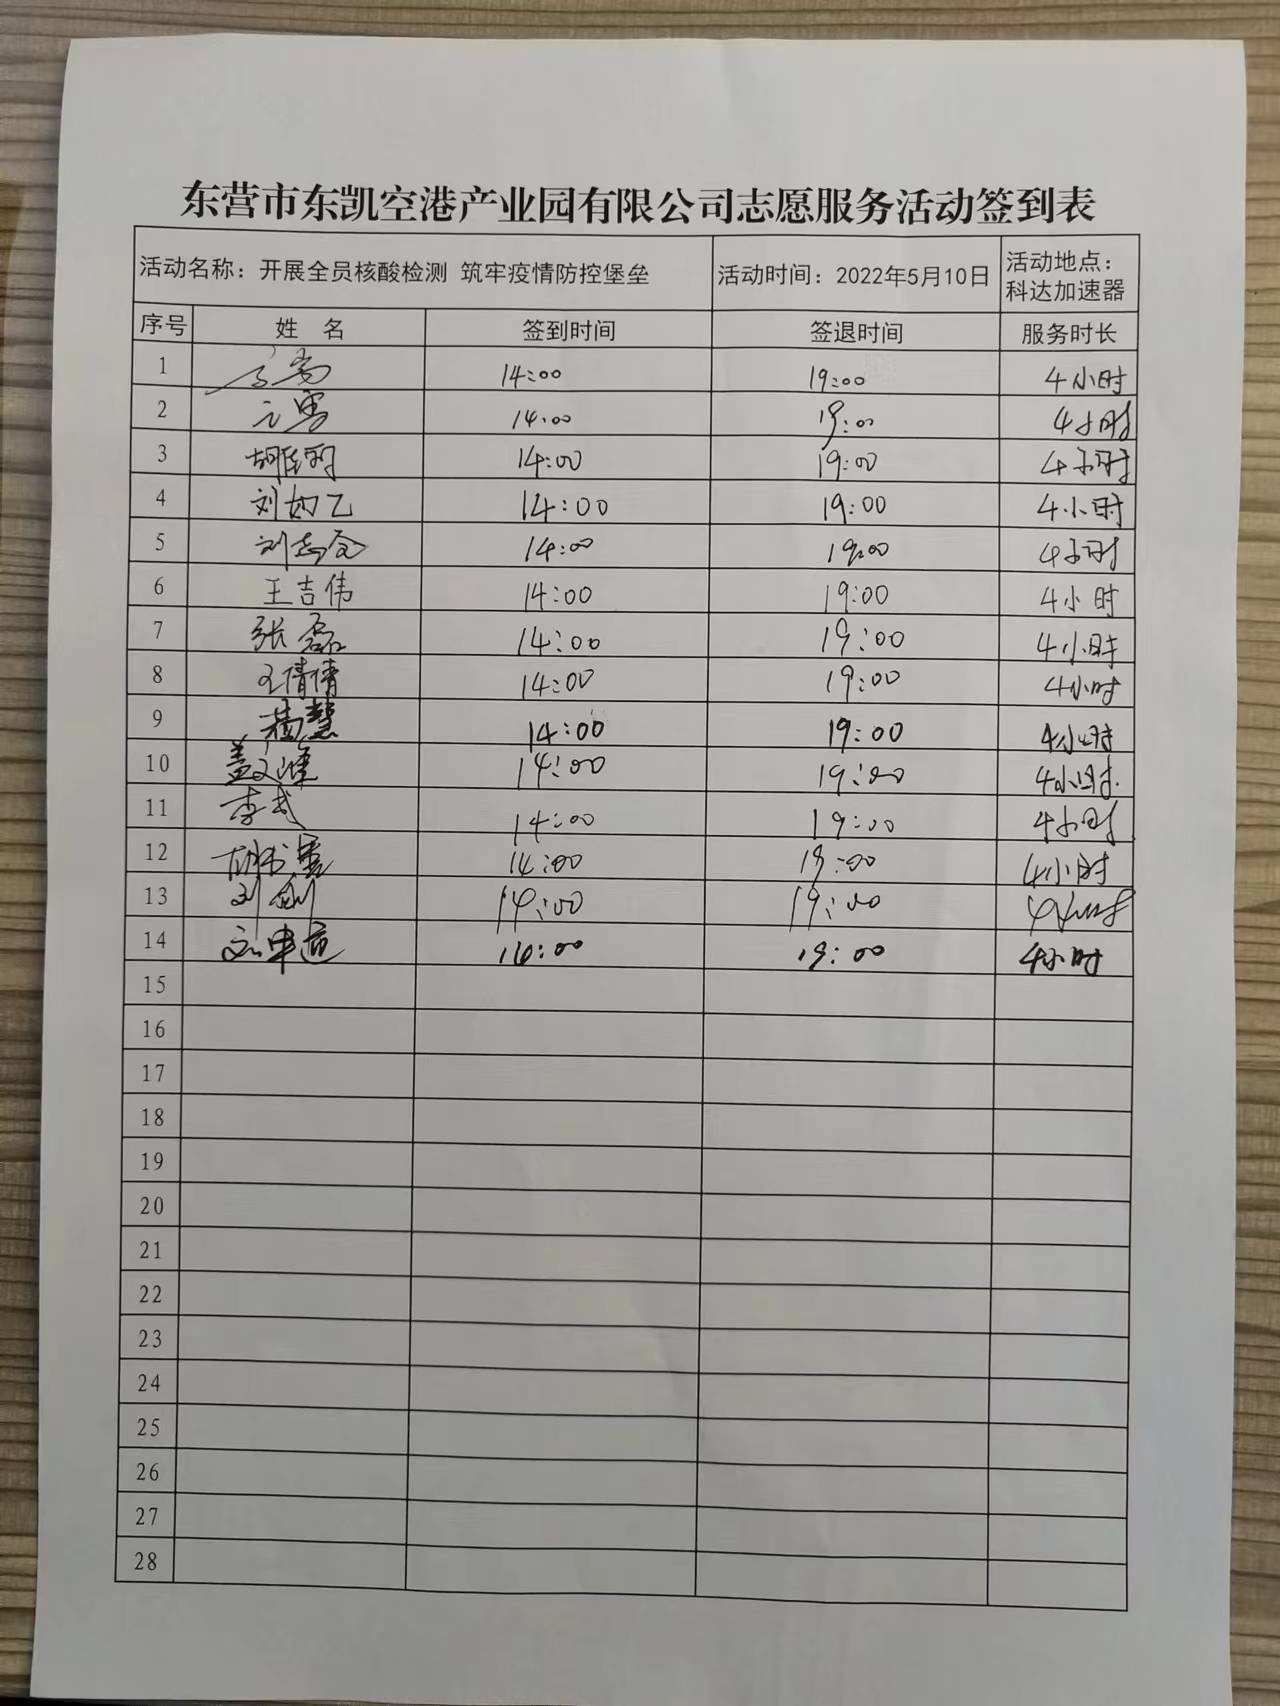 东营市东凯空港产业园有限公司志愿服务活动签到表
活动名称：开展全员核酸检测 筑牢疫情防控堡垒 活动时间：2022年5月10日 活动地点：科达加速器
序号 姓 名 签到时间 签退时间 服务时长
1 14:00 19:00 4小时
2 14:00 19:00 4小时
3 14:00 19:00 4小时
4 刘如乙 14:00 19:00 4小时
5 刘志全 14:00 19:00 4小时
6 王吉伟 14:00 19:00 4小时
7 张磊 14:00 19:00 4小时
8 王倩倩 14:00 19:00 4小时
9 杨慧 14:00 19:00 4小时
10 14:00 19:00 4小时
11 14:00 19:00 4小时
12 14:00 19:00 4小时
13 刘剑 14:00 19:00 4小时
14 19:00 4小时
15
16
17
18
19
20
21
22
23
24
25
26
27
28